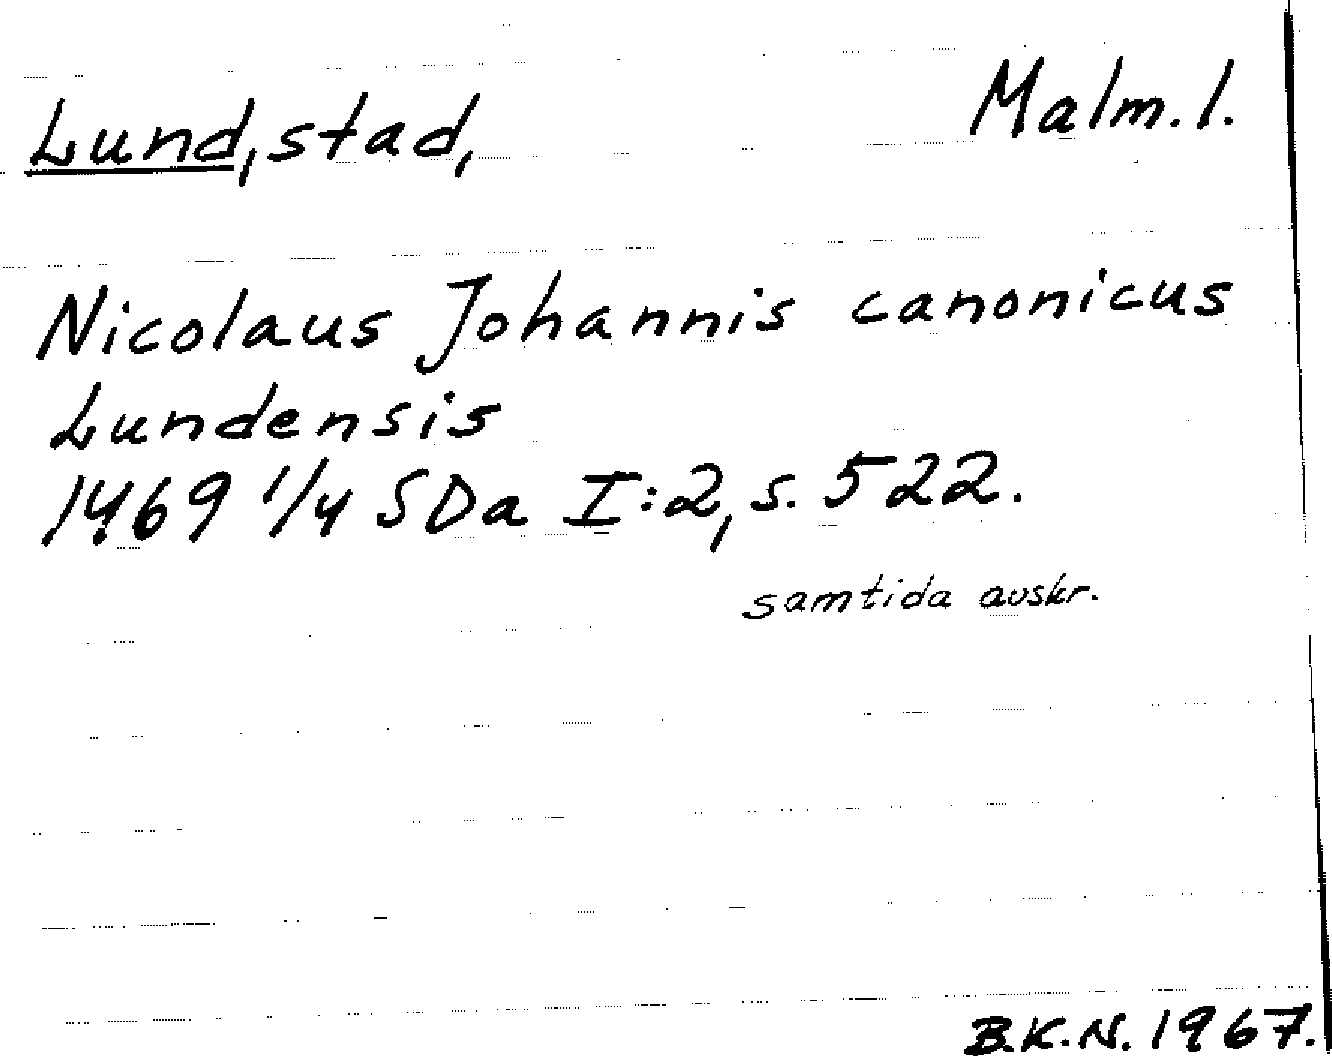 Lund, stad,	Malm. l.
Nicolaus Johannis canonicus
Lundensis
1469 1/4 SDa I:2, s. 522.
samtida avskr.
B.K.N. 1967.